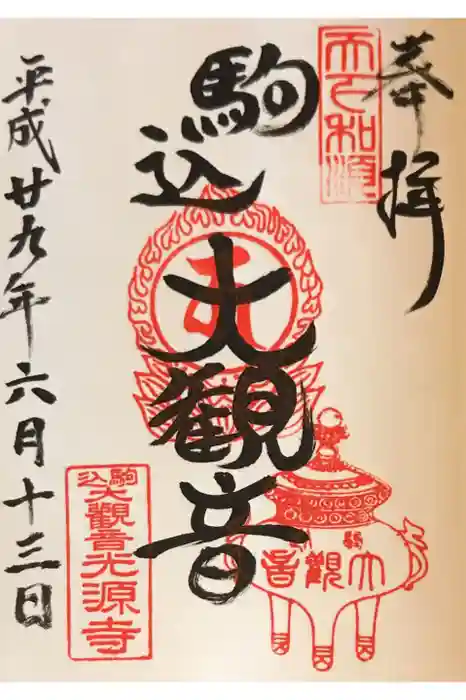 奉拝
天下和順
駒込大観音
大観音
駒込
大觀音光源寺
平成廿九年六月十三日